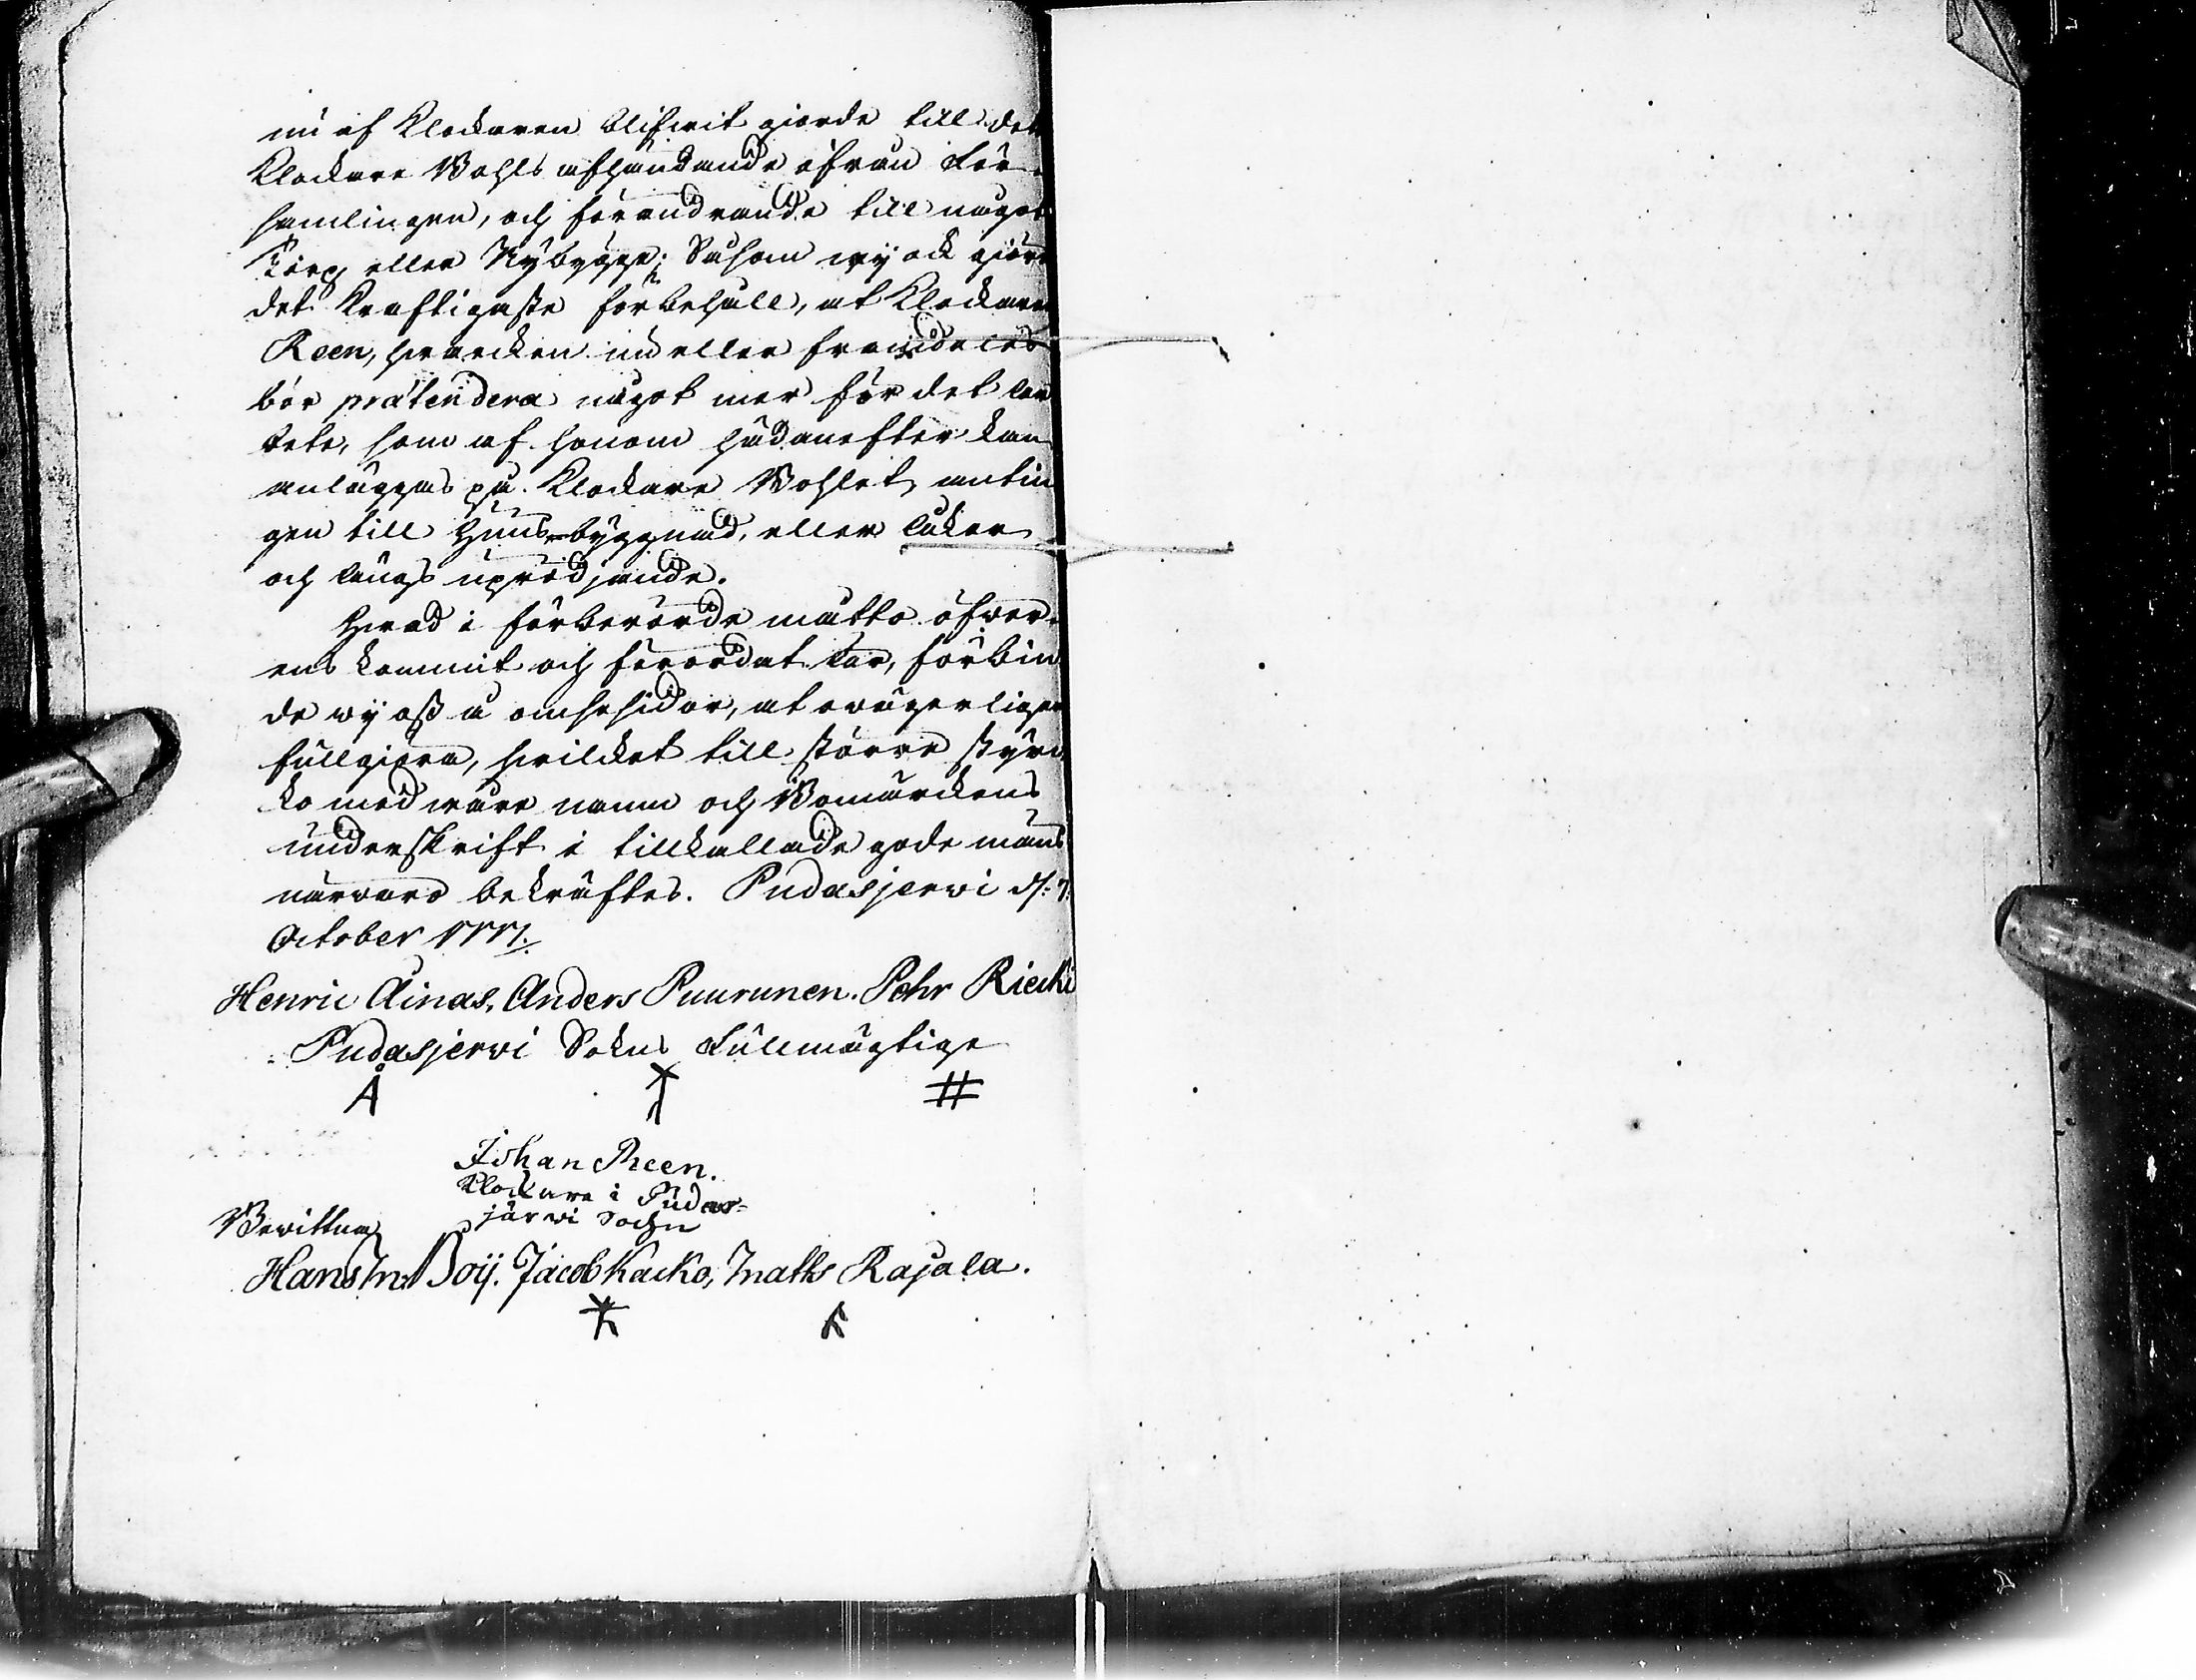 nu af Klockaren blifwit giorde till det
Klockare Bohls afhändande ifrån För-
samlingen, och förändrande till något
Torp eller Nybygge; Såsom wij ock giöre
det kraftigaste förbehåll, at Klockaren
Reen, hwarcken nu eller framdeles
bör prætendera något mer för det ar
bete, som af honom hädanefter kan
anläggas på Klockare Bohlet, antin
gen till Huus-byggnad, eller åker
och ängs uprödjande.
Hwad i förberörde måtto öfwer-
ens kommit och förordat är, förbin
de wij oß å ömsesidor, at owägerligen
fullgiöra, hwilcket till större styr
ko med wåre namn och Bomärckens
underskrift i tillkallade gode mäns
närwaro bekräftes. Pudasjerwi d. 7.
October 1777.
Henric Ainas, Anders Puurunen. Pehr Riecki
Pudasjerwi Sokns Fullmägtige
Å
#
Johan Reen.
Klockare i Pudas-
järwi Sochn
Bewittna
Hans M: Boij. Jacob Kacko, Maths Rajala.